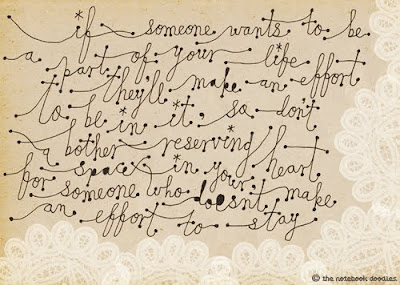 if someone wants to be
a part of your life
they'll make an effort
to be in it, so don't
bother reserving
a space in your heart
for someone who doesn't make
an effort to stay
© the notebook doodles.